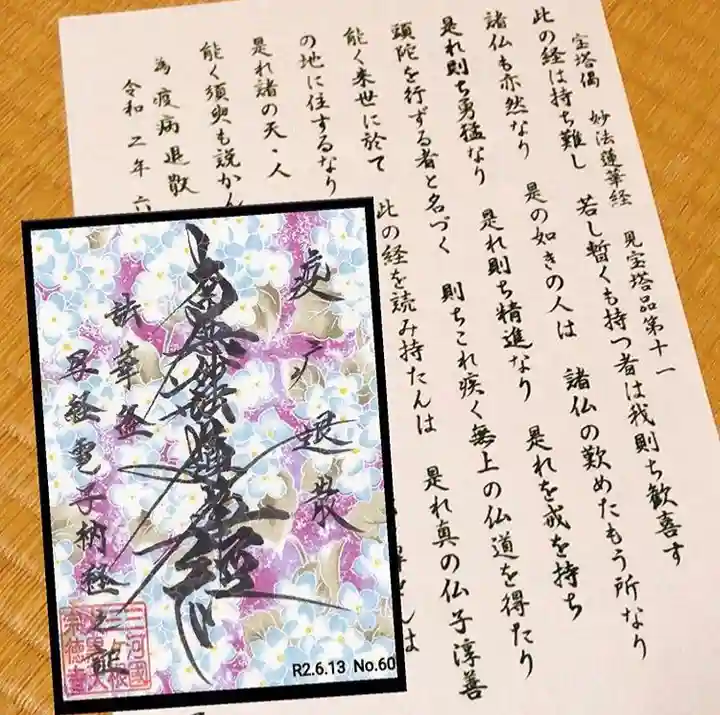 宝塔偈 妙法蓮華経 見宝塔品第十一
此の経は持ち難し 若し暫くも持つ者は我則ち歓喜す
諸仏も亦然なり 是の如きの人は 諸仏の歎めたもう所なり
是れ則ち勇猛なり 是れ則ち精進なり 是れを戒を持ち
頭陀を行ずる者と名づく 則ちこれ疾く無上の仏道を得たり
能く来世に於て 此の経を読み持たんは 是れ真の仏子淳善
の地に住するなり
是れ諸の天・人
能く須臾も説かん
為疫病退散
令和二年六
疫病退散
南無妙法蓮華経
法華経
写経電子納経之証
三河國
R2.6.13 No.60